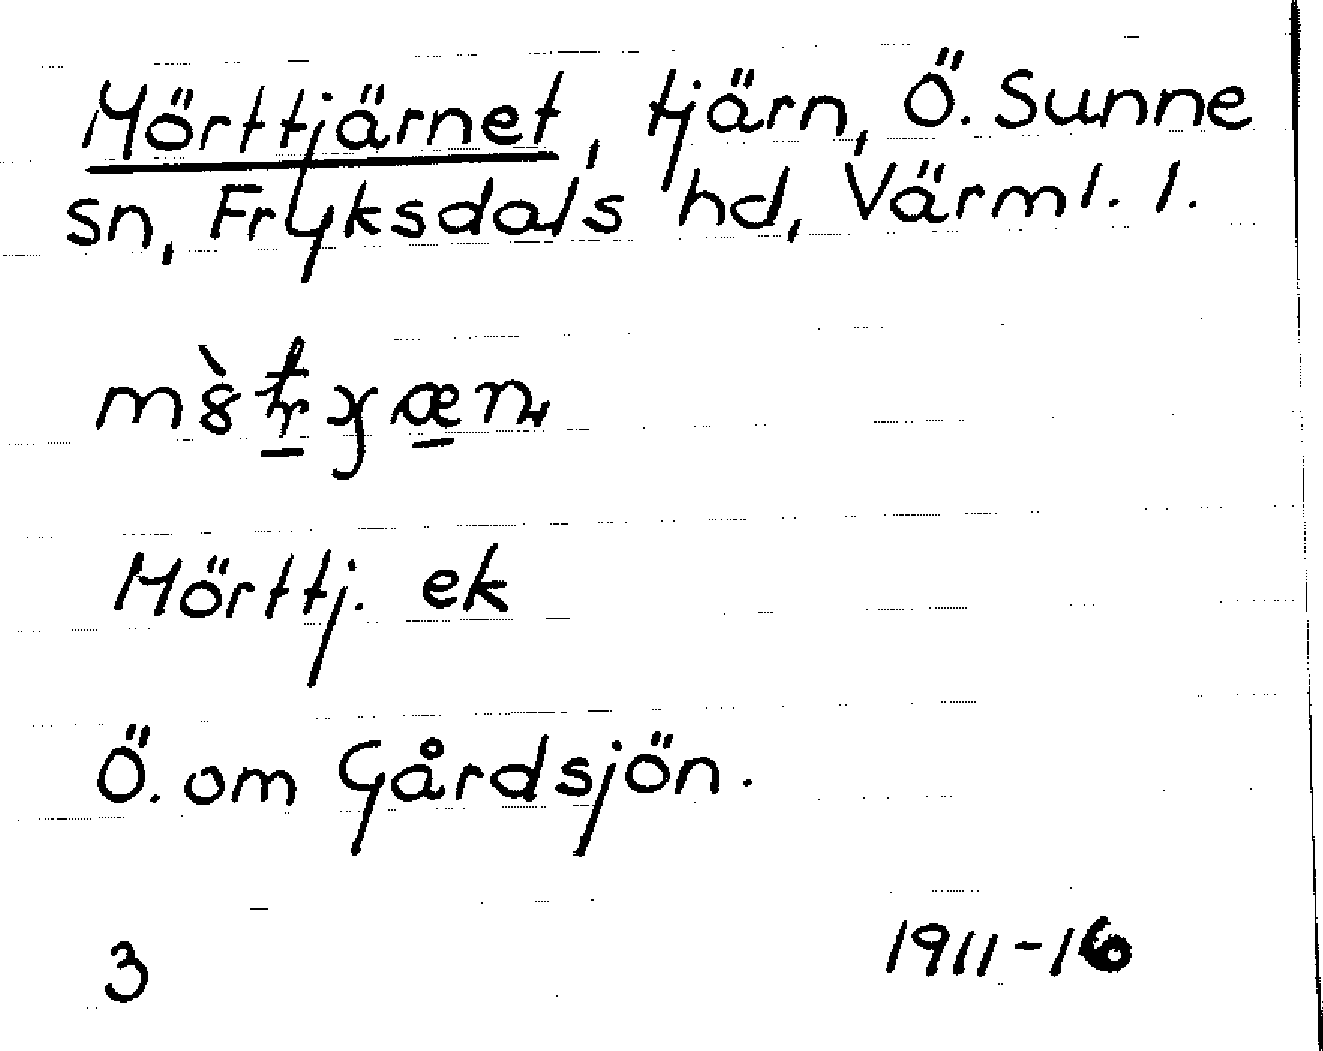 Mörttjärnet, tjärn, Ö. Sunne
sn, Fryksdals hd, Värml. l.
Mörttj. ek
Ö. om Gårdsjön.
3 1911-16